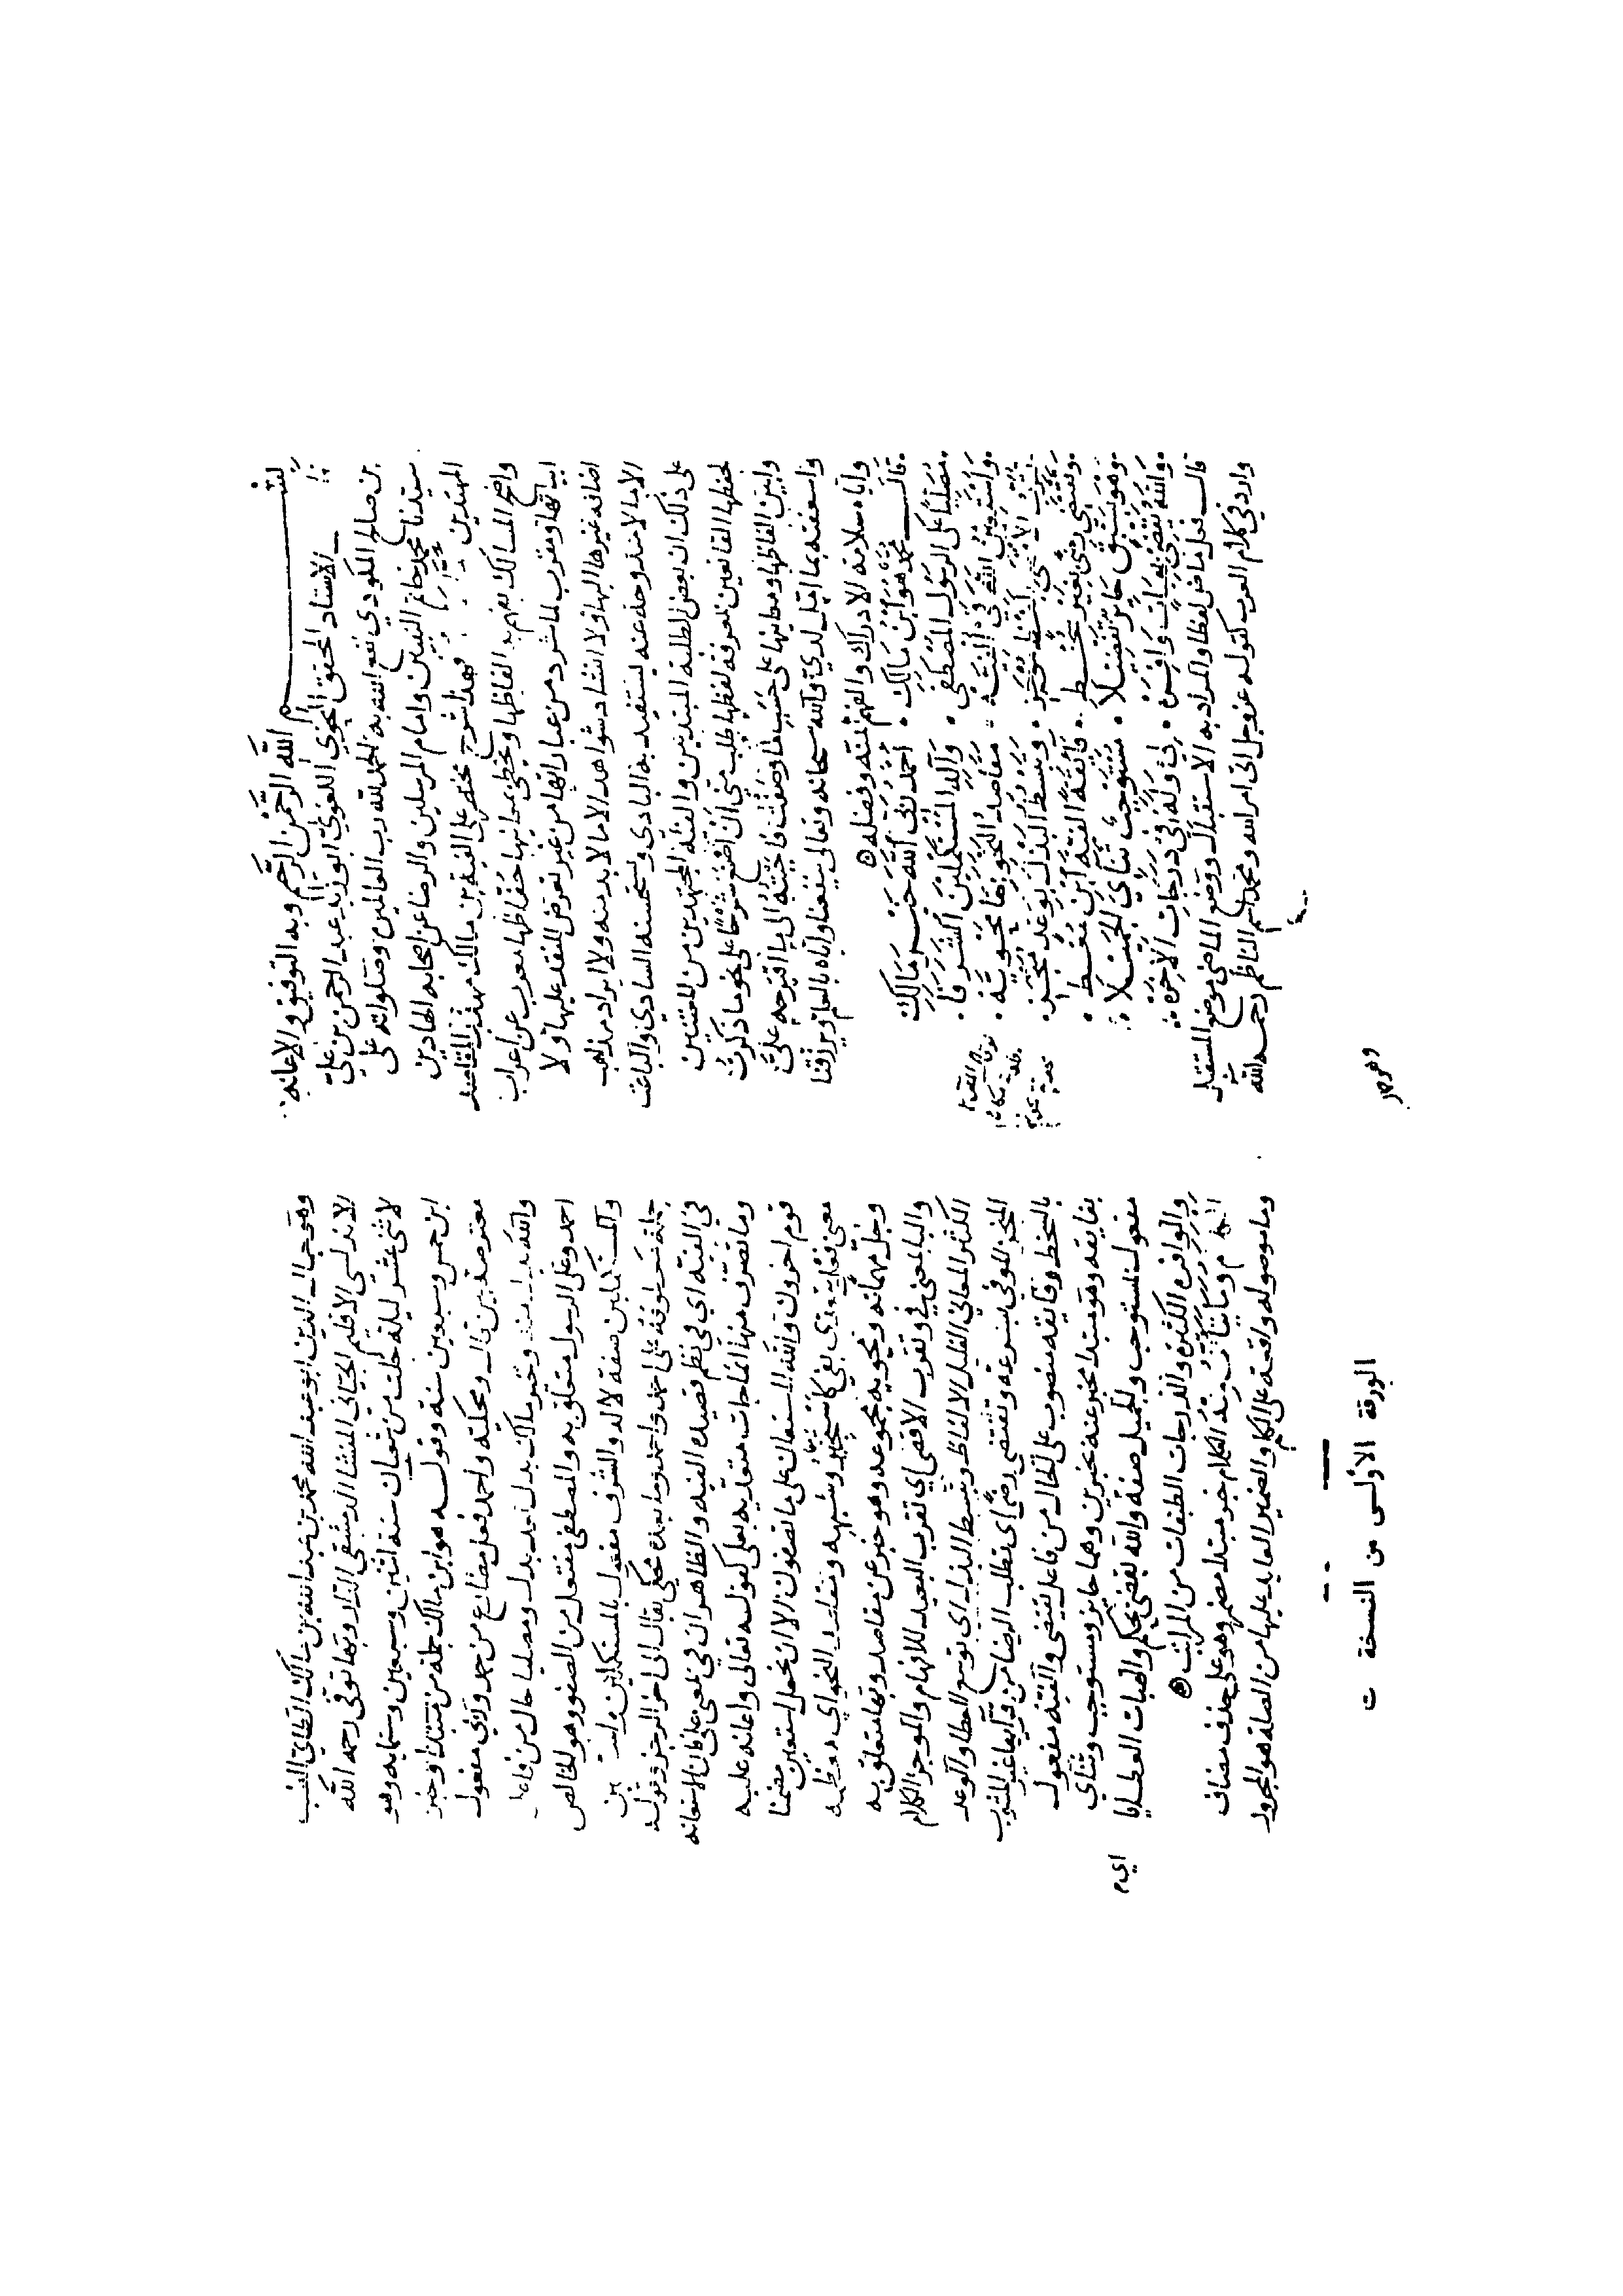 بسم الله الرحمن الرحيم وبه التوفيق والاعانه
الاستاد المحقق النحوي اللغوي ابو زيد عبد الرحمن بن علي
بن صالح المكودي نفع الله به الحمد لله رب العالمين وصلواته على
سيدنا محمد خاتم النبيين وامام المرسلين والرضا عن اصحابه الهادين
المهتدين فهذا شرح مختصر على الفية بن مالك مهذب المقاصد
واضح المسالك يفهم به الفاظها ويحظى بمعانيها حفاظها معرب عن اعراب
ابياتها ومقرب لما شرد من عباراتها من غير تعرض للنقد عليها ولا
اضافه غيرها اليها ولا انشاد شواهد الا ما لا بد منه ولا ايراد مذاهب
الا ما لا مندوحة عنه ليستفيد به البادي ويستحسنه الشادي والباعث
على ذلك ان بعض الطلبة المبتدئين والفئة المجتهدين من المعتنين
بحفظها القانعين بمعرفة لفظها طلب مني ان اضع شرحا على نحو ما ذكرت
وابين الفاظها ومعانيها على حسب ما وصفت فاجبته الى ما اقترحه علي
واسعفته بما امل لدي والله سبحانه وتعالى ينفعنا واياه بالعلم ويرزقنا
واياه سلامة الادراك والفهم بمنه وفضله
قال محمد هو ابن مالك • احمد ربي الله خير مالك
مصليا على الرسول المصطفى • وآله المستكملين الشرفا
واستعين الله في الفيه • مقاصد النحو بها محويه
تقرب الاقصى بلفظ موجز • وتبسط البذل بوعد منجز
وتقتضي رضى بغير سخط • فائقة الفية ابن معط
وهو بسبق حائز تفضيلا • مستوجب ثنائي الجميلا
والله يقضي بهبات وافره • لي وله في درجات الاخره
قال فعل ماض لفظا والمراد به الاستقبال ووضع الماضي موضع المستقبل
وارد في كلام العرب كقوله عز وجل اتى امر الله ومحمد اسم الناظم رحمه الله
وهو جمال
وهو جمال الدين ابو عبد الله محمد بن عبد الله بن مالك الطائي النسب
الاندلسي الاقليم الجياني المنشا الدمشقي الدار وبها توفي رحمه الله
لاثني عشر ليلة خلت من شعبان سنه اثنين وسبعين وستمايه وهو
ابن خمس وسبعين سنة وقوله هو ابن مالك جملة من مبتدا وخبر
معترضه بين قال ومحكيه واحمد فعل مضارع من حمد وربي مفعول
والله بدل منه وخير مالك بدل بعد بدل ومصليا حال من فاعل
احمد وعلى الرسول متعلق به والمصطفى مفتعل من الصفو وهو الخالص
والمستكملين صفة لاله والشرف مفعول بالمستكملين واستعين
جملة معطوفة على احمد واحمد وما بعده محكي بقال الى اخر الرجز وقوله
في الفيه اي في نظم قصيده الفيه والظاهر ان في بمعنى على فان الاستعانه
وما تصرف منها انما جات متعديه بعلى كقوله تعالى واعانه عليه
قوم اخرون والله المستعان على ما تصفون الا ان تحمل استعين مضمنا
معنى
وجل مهماته ومحويه مجموعه وهو خبر عن مقاصد وبها متعلق به
والبا بمعنى في وتقرب الاقصى اي تقرب البعيد للافهام والموجز الكلام
الكثير المعاني القليل الالفاظ وتبسط البذل اي توسع العطا والوعد
المنجز الموفي بسرعه وتقتضي رضى اي تطلب الرضا من قاريها غير المشوب
بالسخط وفايقه منصوب على الحال من فاعل تقتضي والفية مفعول
بفايقه وهو مبتدا مخبر عنه بخبرين وهما حايز ومستوجب وثنائي
مفعول بمستوجب والجميل صفة والله يقضي يحكم والهبات العطايا
اي م
والوافره الكثيره والدرجات الطبقات من المراتب
الكلام وما يتالف منه الكلام خبر مبتدا مضمر وهو على حذف مضاف
وما موصوله واقعة على الكلم والضمير العايد عليها من الصله هو المجرور
الورقة الأولى من النسخة ت